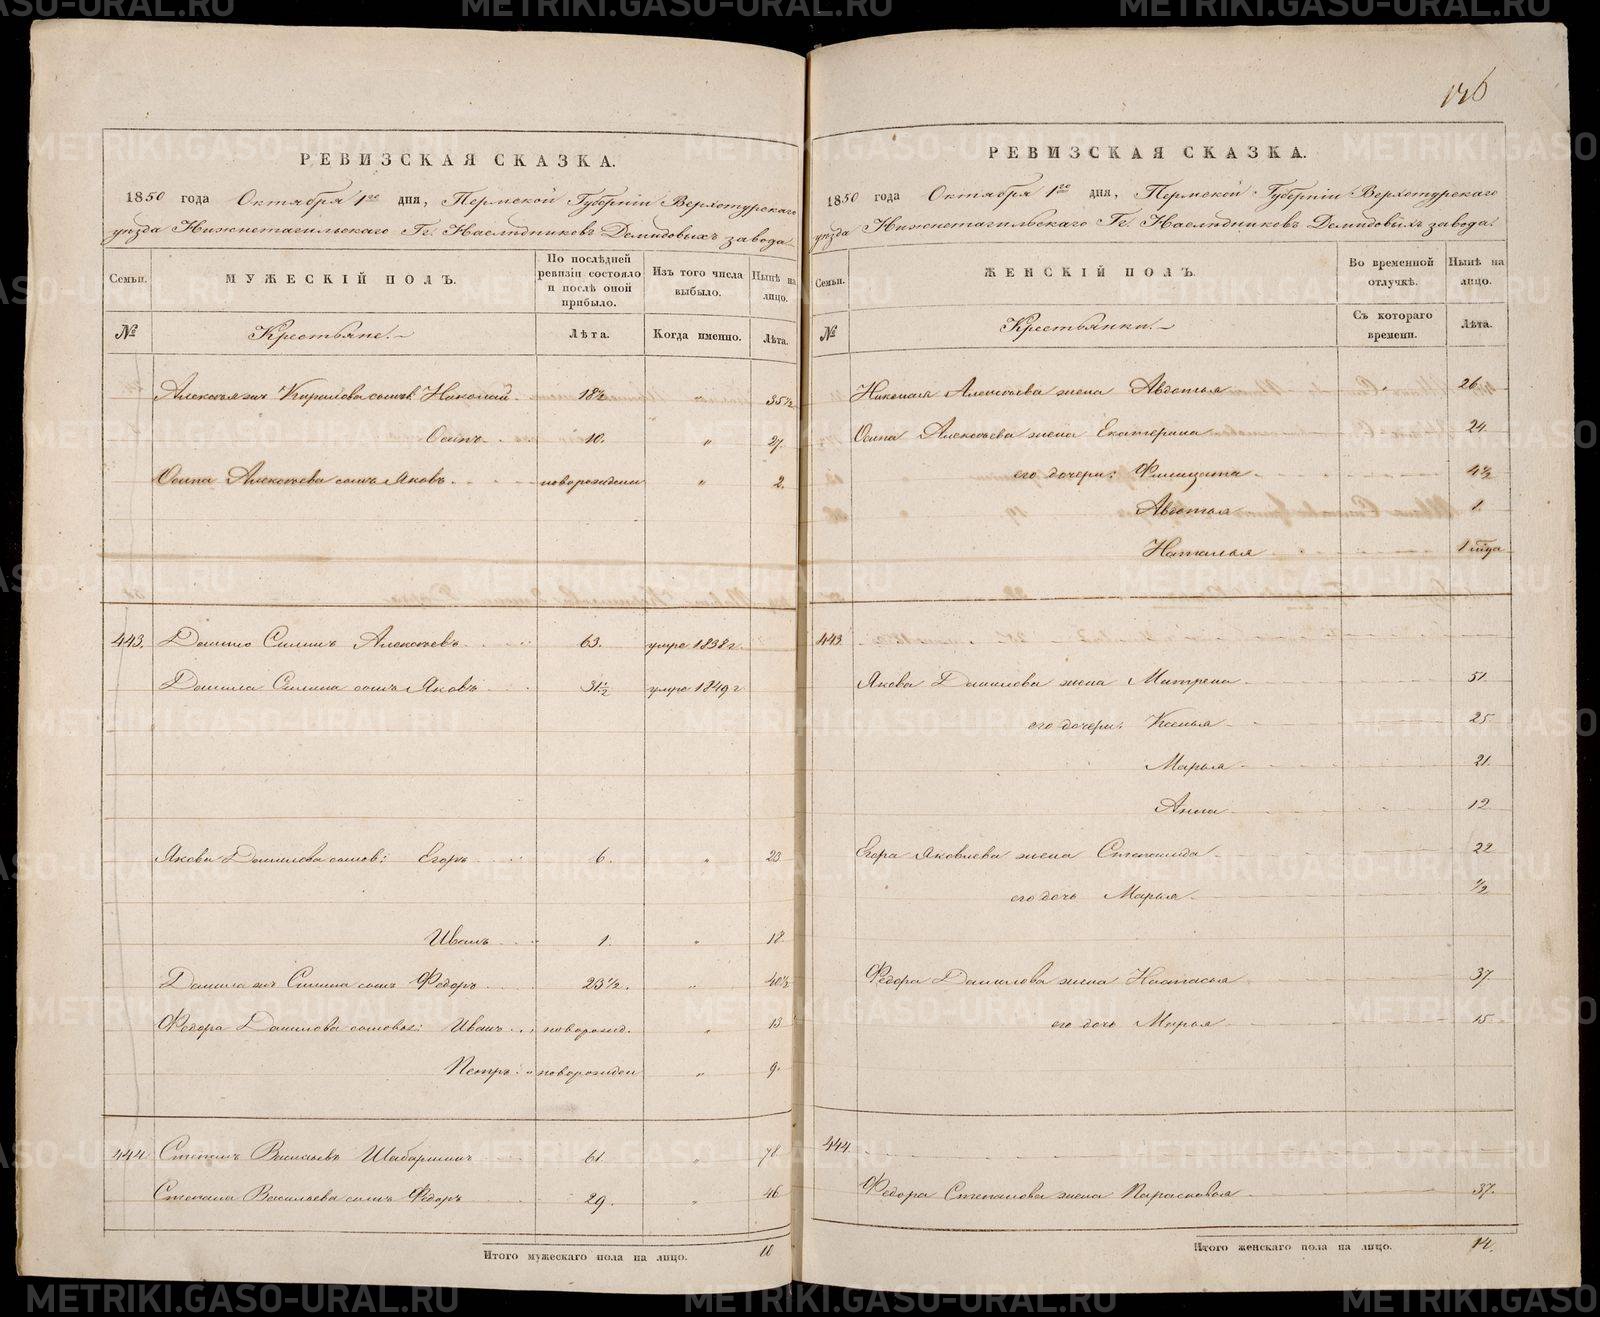 126
РЕВИЗСКАЯ СКАЗКА.
1850 года Октября 1го дня, Пермской Губерніи Верхотурскаго
уѣзда Нижнетагильскаго Гг. Наслѣдниковъ Демидовыхъ завода.
Семьи.
МУЖЕСКІЙ ПОЛЪ.
По послѣдней ревизіи состояло и послѣ оной прибыло.
Изъ того числа выбыло.
Нынѣ на лицо.
№
Крестьяне.
Лѣта.
Когда именно.
Лѣта.
Алексѣя же Кирилова сынъ Николай 18½ " 35½
Осипъ 10. " 27.
Осипа Алексѣева сынъ Яковъ новорожден " 2.
443. Данило Силинъ Алексѣевъ 63. умре 1838 г.
Данила Силина сынъ Яковъ 31½ умре 1849 г
Якова Данилова сынов: Егоръ 6. " 23
Иванъ 1. " 18
Данила же Силина сынъ Федоръ 23½. " 40½
Федора Данилова сыновья: Иванъ новорожд. " 13
Петръ новорожден " 9.
444 Степанъ Васильевъ Шабаршинъ 61. " 78
Степана Васильева сынъ Федоръ 29. " 46
Итого мужескаго пола на лицо. 10
РЕВИЗСКАЯ СКАЗКА.
1850 года Октября 1го дня, Пермской Губерніи Верхотурскаго
уѣзда Нижнетагильскаго Гг. Наслѣдниковъ Демидовыхъ завода.
Семьи.
ЖЕНСКІЙ ПОЛЪ.
Во временной отлучкѣ.
Нынѣ на лицо.
№
Крестьянки.
Съ котораго времени.
Лѣта.
Николая Алексѣева жена Авдотья " 26
Осипа Алексѣева жена Екатерина 24
его дочери: Филицата 4½
Авдотья 1.
Наталья 1 года
443.
Якова Данилова жена Матрена 51
его дочери: Ксенья 25
Марья 21.
Анна 12
Егора Яковлева жена Степанида 22
его дочь Марья ½
Федора Данилова жена Настасья 37
его дочь Марья 15
444.
Федора Степанова жена Парасковья 37.
Итого женскаго пола на лицо. 14.
METRIKI.GASO-URAL.RU